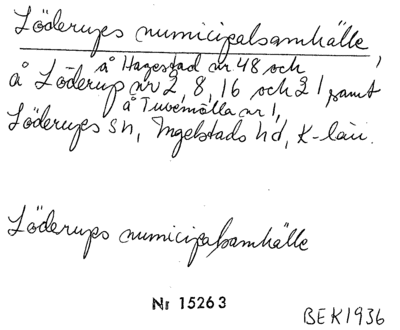 Löderups municipalsamhälle,
å Hagestad nr 48 och
å Löderup nr 2, 8, 16 och 21 samt
å Tuvemölla nr 1,
Löderups sn, Ingelstads hd, K-län.
Löderups municipalsamhälle
Nr 15263
BEK1936